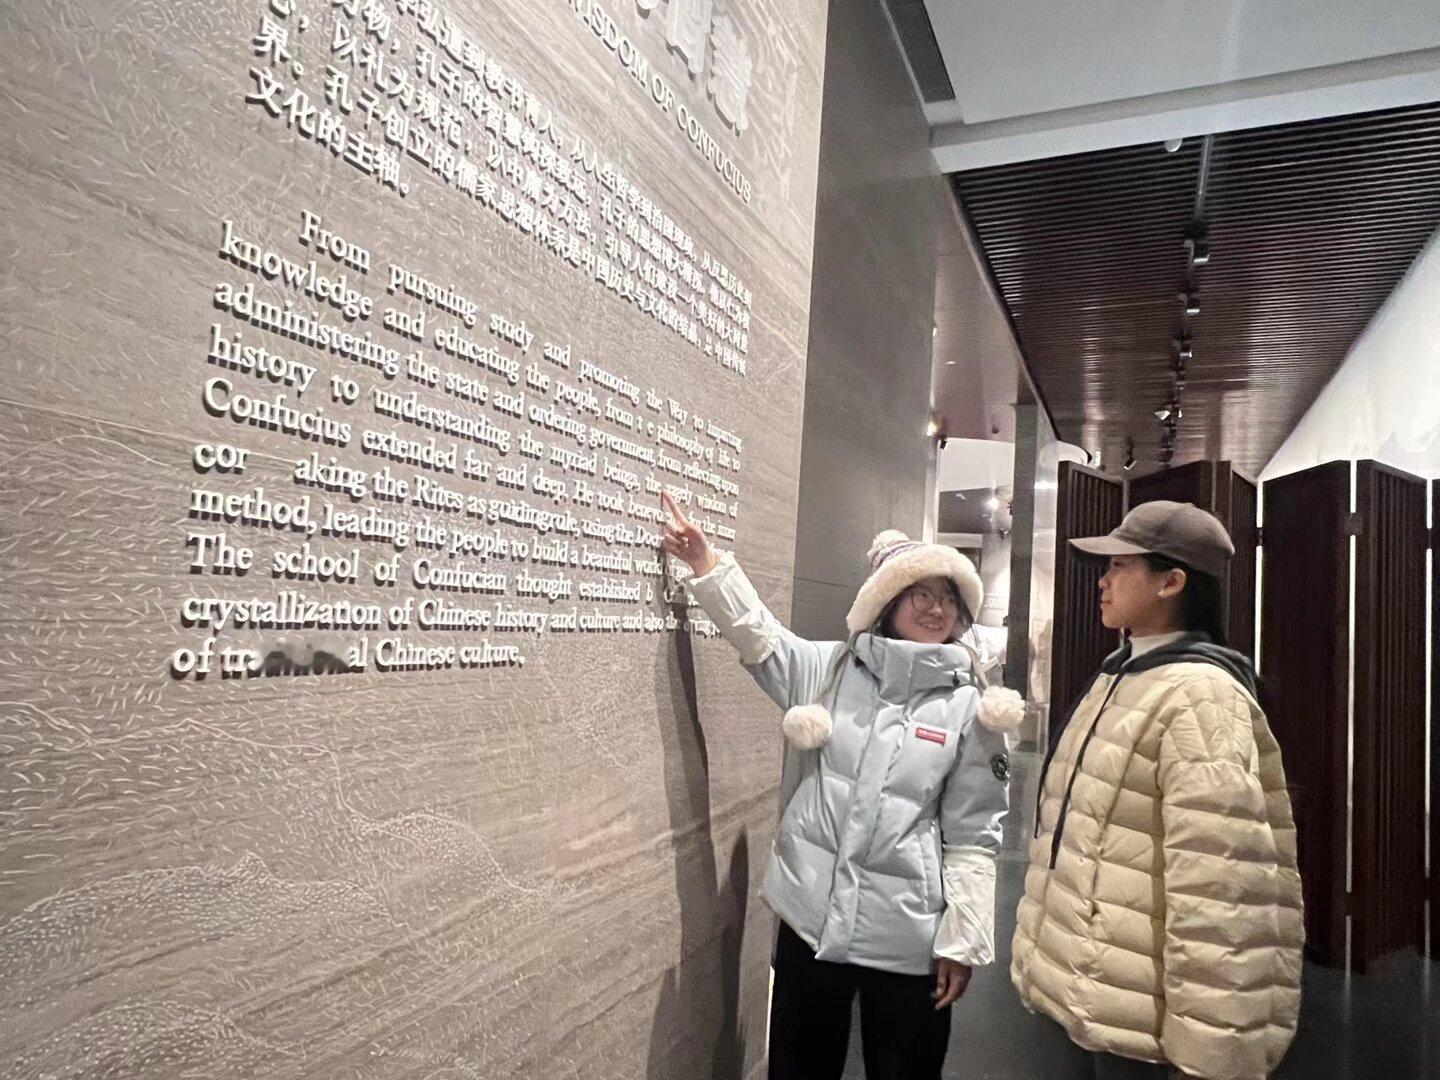 WISDOM OF CONFUCIUS
弘道到教书育人，从人生哲学到治国理政，从反思历史到
万物，孔子的智慧钩深致远。孔子的思想博大精深，他以仁为核
心，以礼为规范，以中庸为方法，引导人们建设一个美好的大同世
界。孔子创立的儒家思想体系是中国历史与文化的结晶，是中国传统
文化的主轴。
From pursuing study and promoting the Way to imparting
knowledge and educating the people, from t e philosophy of life to
administering the state and ordering government, from reflecting upon
history to understanding the myriad beings, the sagely wisdom of
Confucius extended far and deep. He took for the inner
cor aking the Rites as guidingrule, using the
method, leading the people to build a beautiful world of
The school of Confucian thought established b
crystallization of Chinese history and culture and also the
of al Chinese culture.